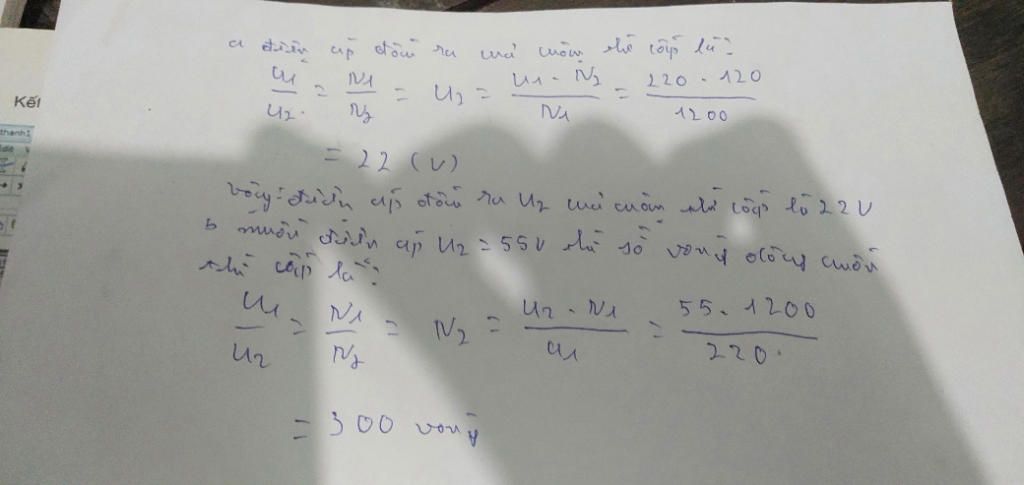 Kết
a điện áp đầu ra của cuộn thứ cấp là:
U1/U2 = N1/N2 = U2 = U1 . N2/N1 = 220 . 120/1200
= 22 (V)
Vậy: điện áp đầu ra U2 của cuộn thứ cấp là 22V
b muốn điện áp U2 = 55V thì số vòng dây cuốn
thứ cấp là:
U1/U2 = N1/N2 = N2 = U2 . N1/U1 = 55 . 1200/220
= 300 vòng